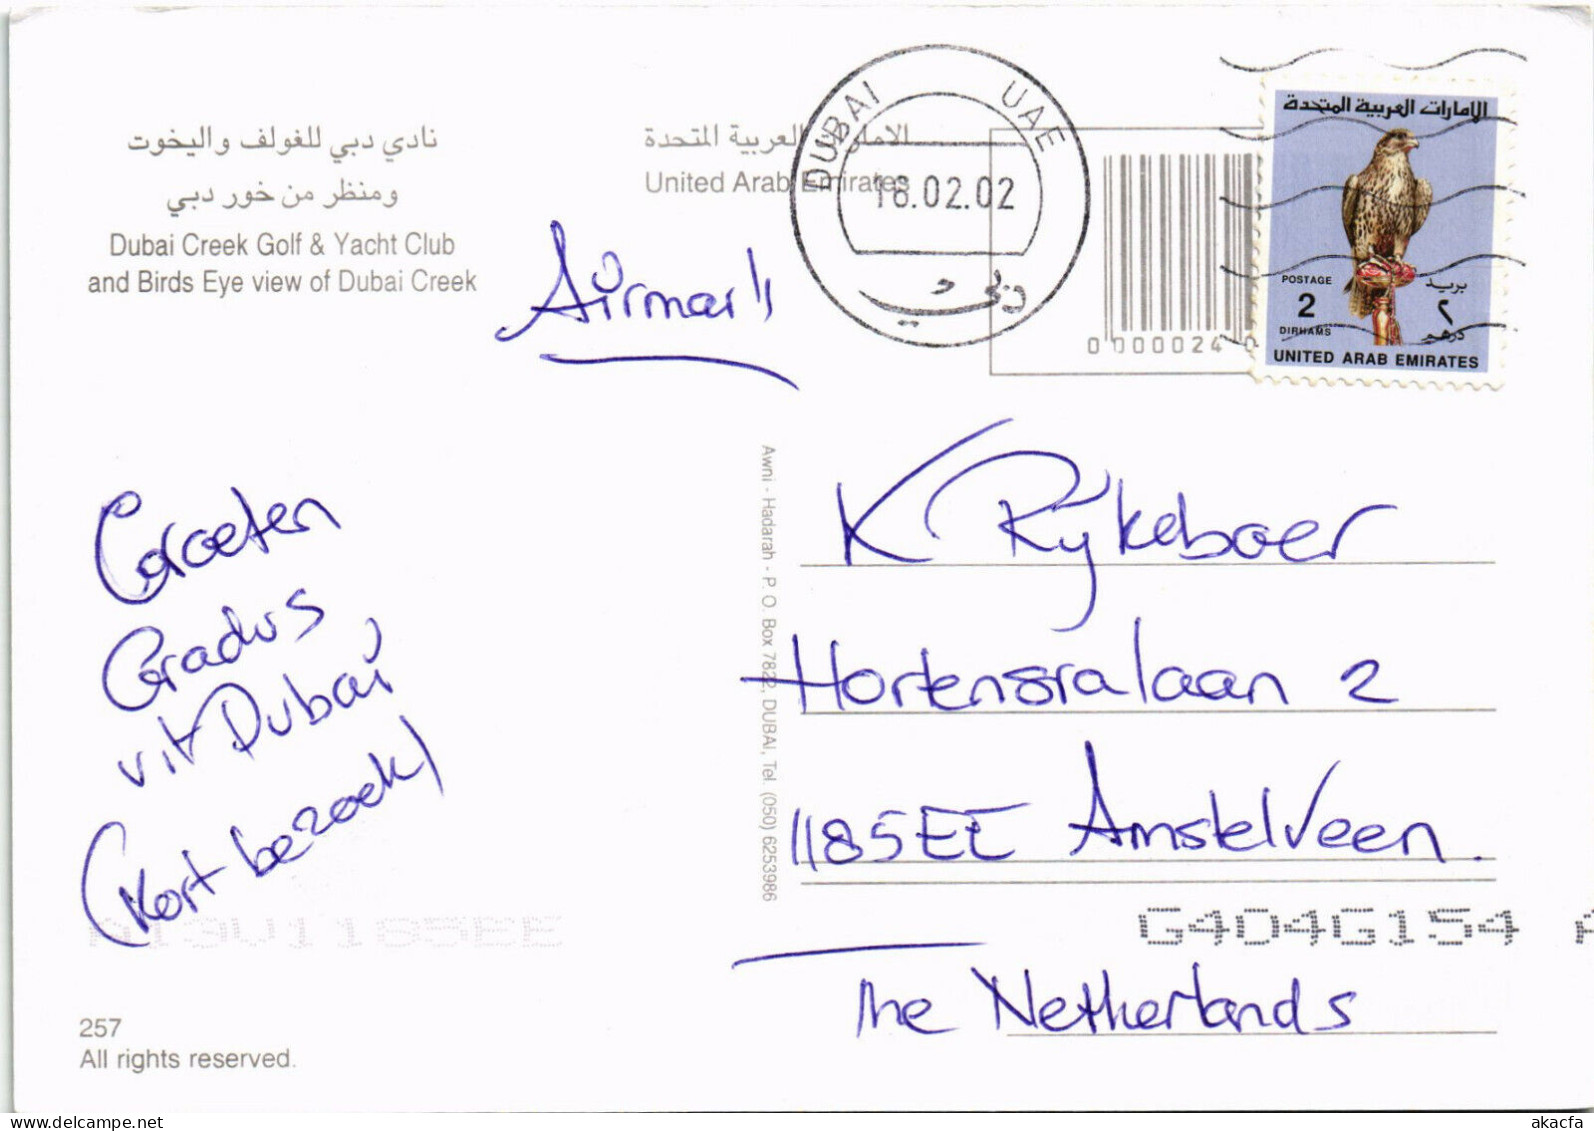 نادي دبي للغولف واليخوت
ومنظر من خور دبي
Dubai Creek Golf & Yacht Club
and Birds Eye view of Dubai Creek
الامارات العربية المتحدة
United Arab Emirates
DUBAI UAE
18.02.02
دبي
0000024
الامارات العربية المتحدة
POSTAGE
2
DIRHAMS
بريد
٢
درهم
UNITED ARAB EMIRATES
Airmail
Groeten
Gradus
uit Dubai
(Kort bezoek)
Awni - Hadarah - P. O. Box 7822, DUBAI, Tel. (050) 6253986
K Rijkeboer
Hortensialaan 2
1185EE Amstelveen.
The Netherlands
G4D4G154
1185EE
257
All rights reserved.
akacfa